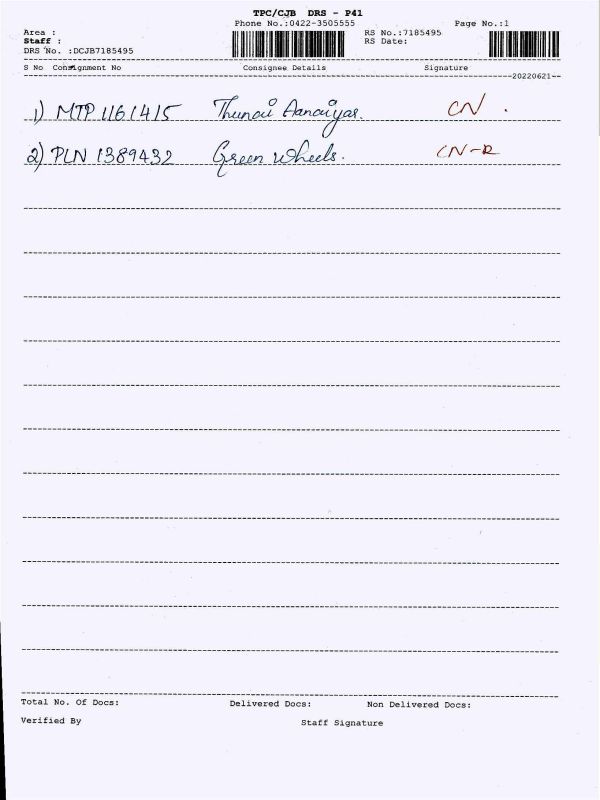 TPC/CJB DRS - P41
Phone No.:0422-3505555 Page No.:1
Area :
Staff :
DRS No. :DCJB7185495
RS No.:7185495
RS Date:
S No Consignment No Consignee Details Signature
20220621
1) MTP 1161415 Thunai Aanaiyar. CN.
2) PLN 1389432 Green Wheels. CN-R
Total No. Of Docs: Delivered Docs: Non Delivered Docs:
Verified By Staff Signature